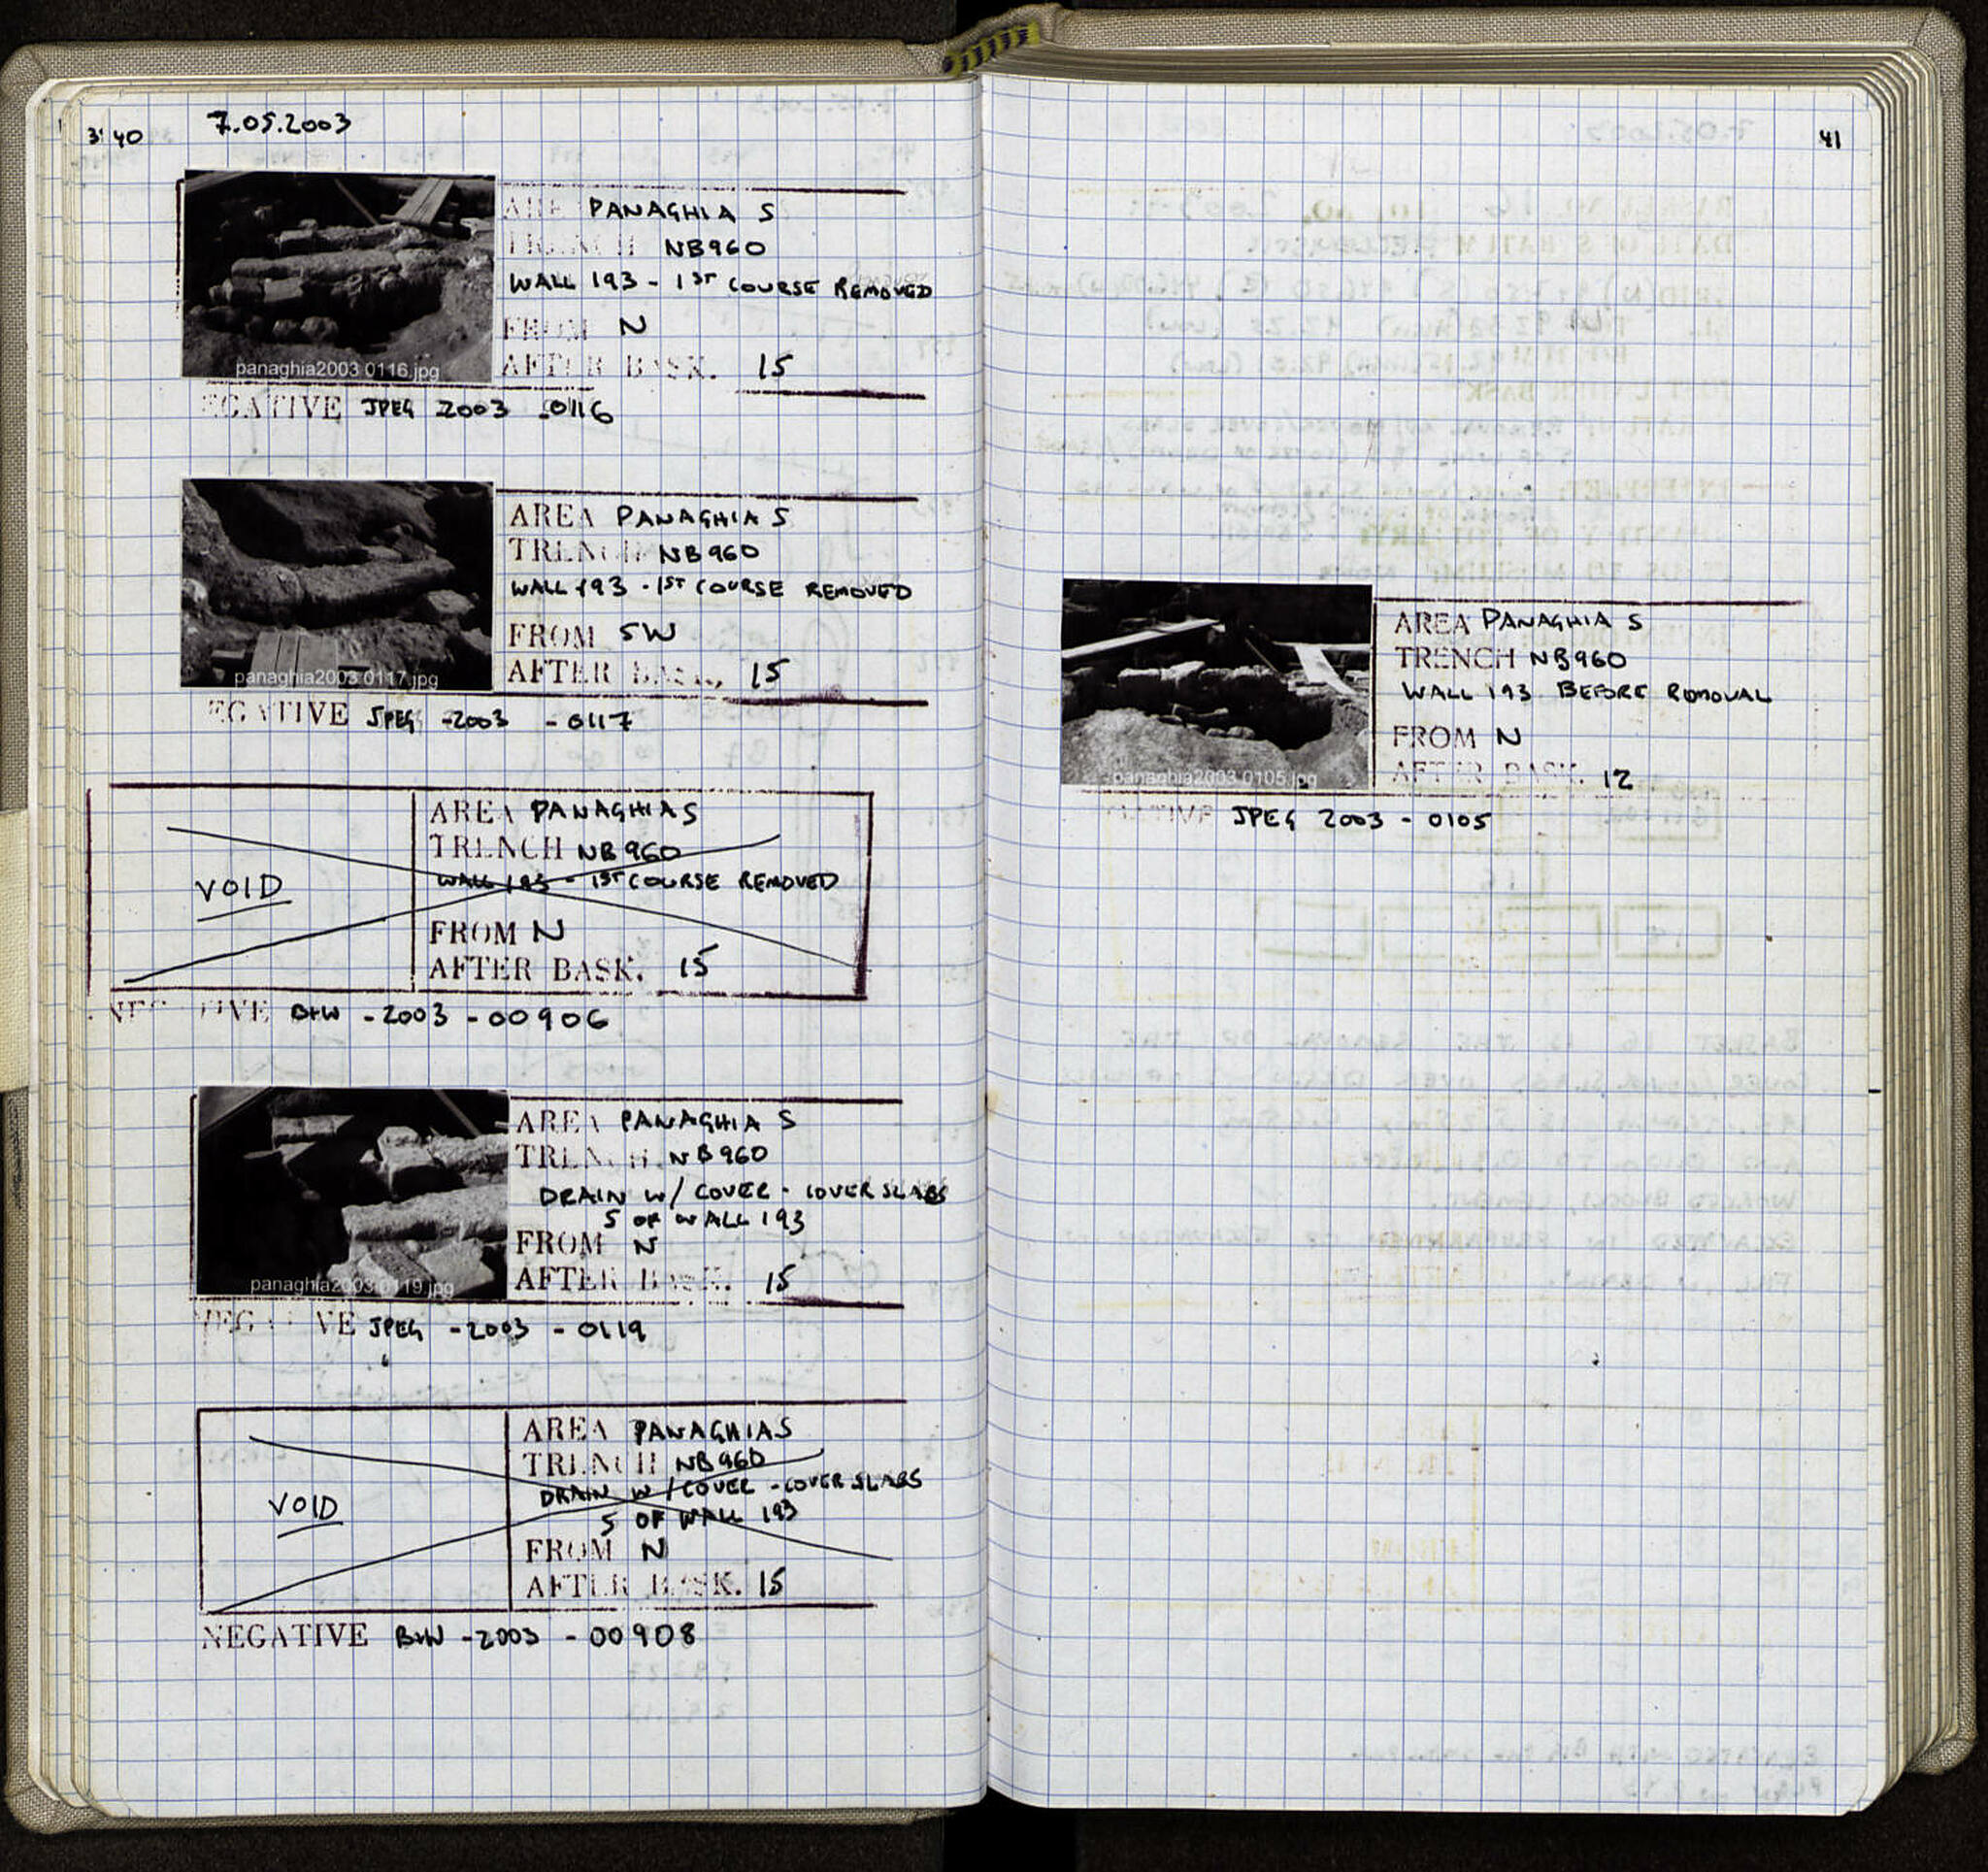 40
7.05.2003
AREA PANAGHIA S
TRENCH NB960
WALL 193 - 1ST COURSE REMOVED
FROM N
AFTER BASK. 15
panaghia2003 0116.jpg
NEGATIVE JPEG 2003 -0116
AREA PANAGHIA S
TRENCH NB960
WALL 193 - 1ST COURSE REMOVED
FROM SW
AFTER BASK. 15
panaghia2003 0117.jpg
NEGATIVE JPEG -2003 - 0117
AREA PANAGHIA S
TRENCH NB960
VOID
WALL 193 - 1ST COURSE REMOVED
FROM N
AFTER BASK. 15
NEGATIVE B+W -2003 -00906
AREA PANAGHIA S
TRENCH NB960
DRAIN W/ COVER - COVER SLABS
S OF WALL 193
FROM N
AFTER BASK. 15
panaghia2003 0119.jpg
NEGATIVE JPEG -2003 - 0119
AREA PANAGHIA S
TRENCH NB960
DRAIN W/COVER - COVER SLABS
VOID
S OF WALL 193
FROM N
AFTER BASK. 15
NEGATIVE B+W -2003 -00908
41
AREA PANAGHIA S
TRENCH NB960
WALL 193 BEFORE REMOVAL
FROM N
AFTER BASK. 12
panaghia2003 0105.jpg
NEGATIVE JPEG 2003 - 0105